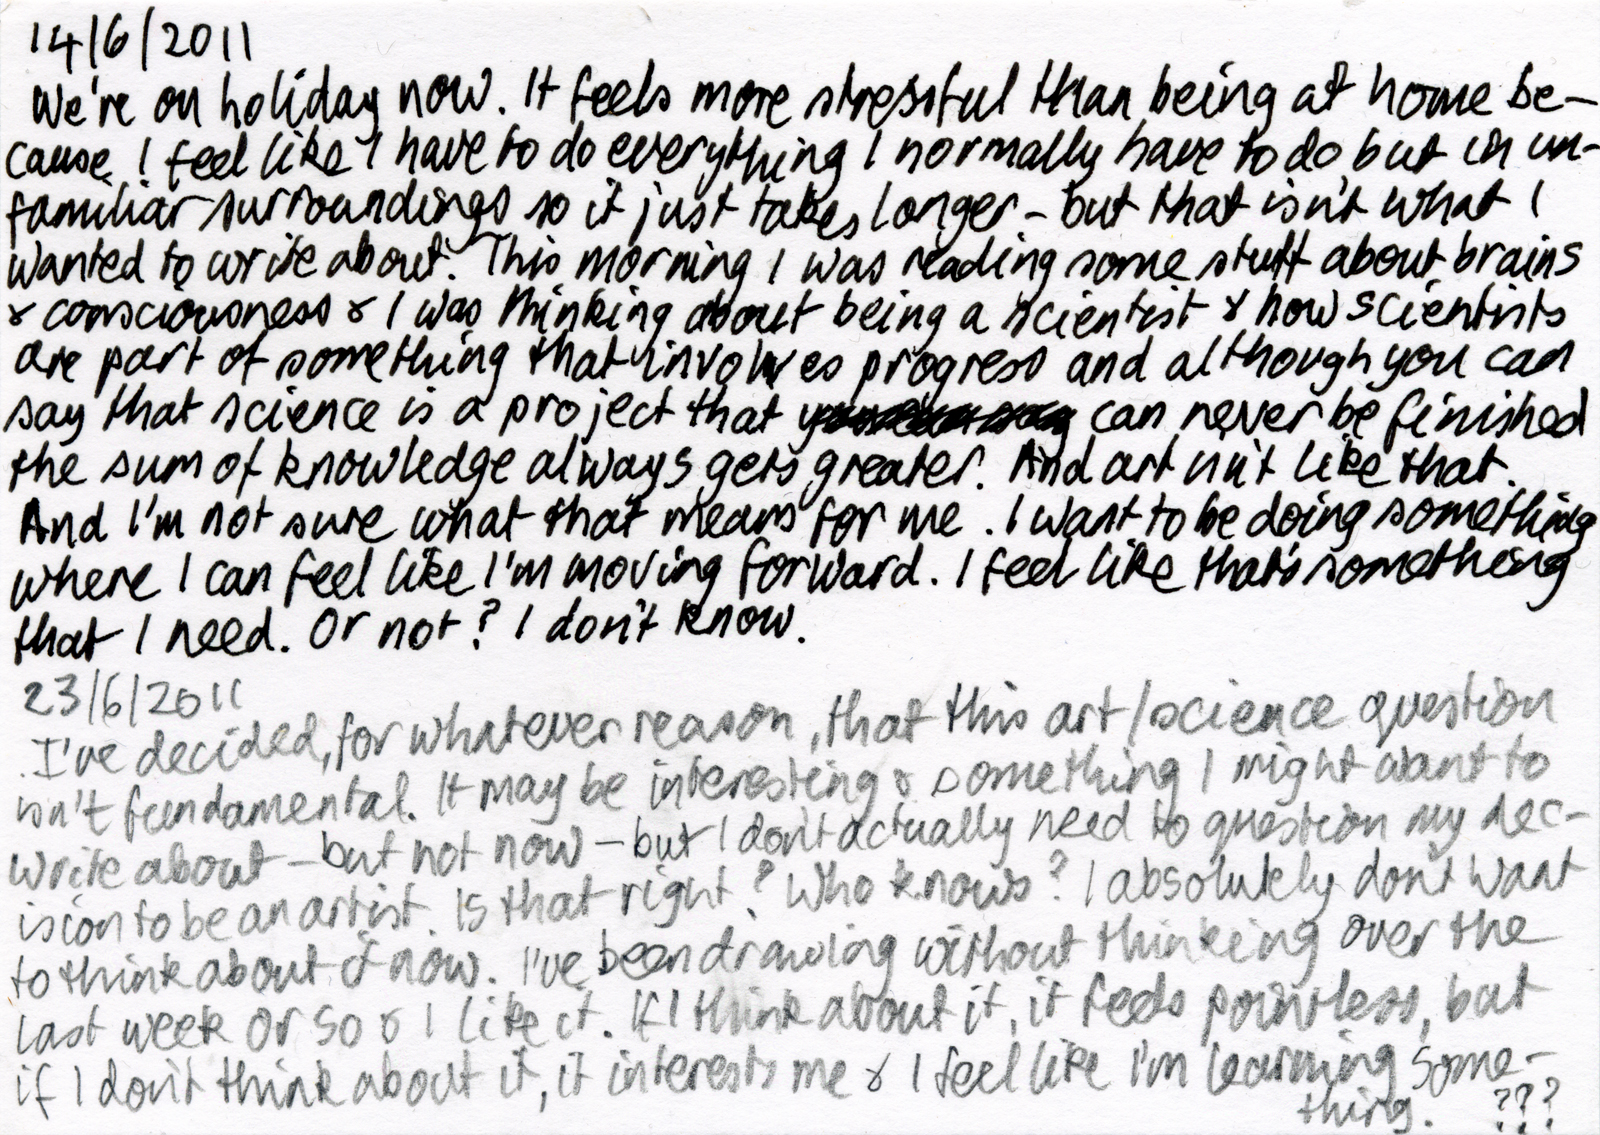 14/6/2011
We're on holiday now. It feels more stressful than being at home be-
cause I feel like I have to do everything I normally have to do but in un-
familiar surroundings so it just takes longer - but that isn't what I
wanted to write about. This morning I was reading some stuff about brains
& consciousness & I was thinking about being a scientist & how scientists
are part of something that involves progress and although you can
say that science is a project that can never be finished
the sum of knowledge always gets greater. And art isn't like that.
And I'm not sure what that means for me. I want to be doing something
where I can feel like I'm moving forward. I feel like that's something
that I need. Or not? I don't know.
23/6/2011
I've decided, for whatever reason, that this art/science question
isn't fundamental. It may be interesting & something I might want to
write about - but not now - but I don't actually need to question my dec-
ision to be an artist. Is that right? Who knows? I absolutely don't want
to think about it now. I've been drawing without thinking over the
last week or so & I like it. If I think about it, it feels pointless, but
if I don't think about it, it interests me & I feel like I'm learning some-
thing. ???